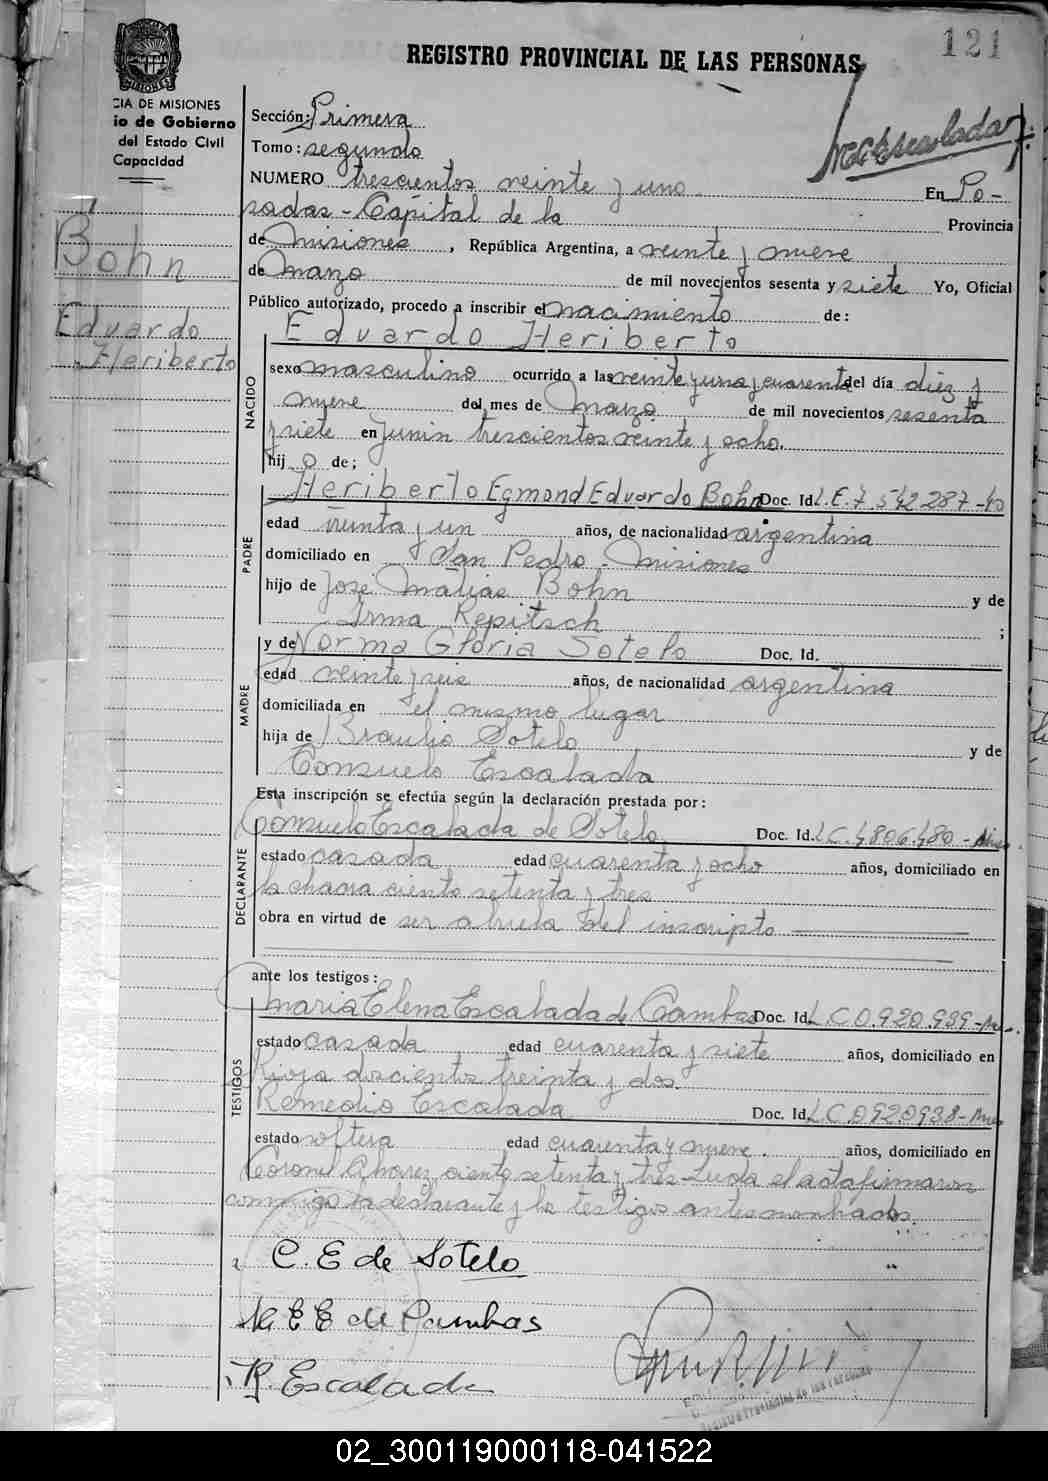 121
REGISTRO PROVINCIAL DE LAS PERSONAS
MISIONES
CIA DE MISIONES
io de Gobierno
del Estado Civil
Capacidad
Sección: Primera
Tomo: segundo
NUMERO trescientos veinte y uno En Po-
sadas - Capital de la Provincia
de Misiones, República Argentina, a veinte y nueve
de Marzo de mil novecientos sesenta y siete Yo, Oficial
Público autorizado, procedo a inscribir el nacimiento de:
Bohn
Eduardo
Heriberto
Eduardo Heriberto
NACIDO
sexo masculino ocurrido a las veinte y una y cuarenta del día diez y
nueve del mes de Marzo de mil novecientos sesenta
y siete en Junín trescientos veinte y ocho.
hijo de;
PADRE
Heriberto Egmond Eduardo Bohn Doc. Id. L.E. 7.542.287
edad treinta y un años, de nacionalidad argentina
domiciliado en San Pedro - Misiones
hijo de José Matias Bohn y de
Irma Repitsch ;
MADRE
y de Norma Gloria Sotelo Doc. Id.
edad veinte y seis años, de nacionalidad argentina
domiciliada en el mismo lugar
hija de Braulio Sotelo y de
Consuelo Escalada
Esta inscripción se efectúa según la declaración prestada por:
DECLARANTE
Consuelo Escalada de Sotelo Doc. Id. L.C. 4806.480
estado casada edad cuarenta y ocho años, domiciliado en
la chacra ciento setenta y tres
obra en virtud de ser abuela del inscripto
ante los testigos:
TESTIGOS
Maria Elena Escalada de Cambas Doc. Id. L.C.0.920.939
estado casada edad cuarenta y siete años, domiciliado en
Rioja doscientos treinta y dos.
Remedio Escalada Doc. Id. L.C.0920938
estado soltera edad cuarenta y nueve. años, domiciliado en
Coronel Alvarez ciento setenta y tres - Leida el acta firmaron
conmigo la declarante y los testigos antes nombrados.
C. E de Sotelo
M. E E de Cambas
R. Escalada
Registro Provincial de las Personas
02_300119000118-041522